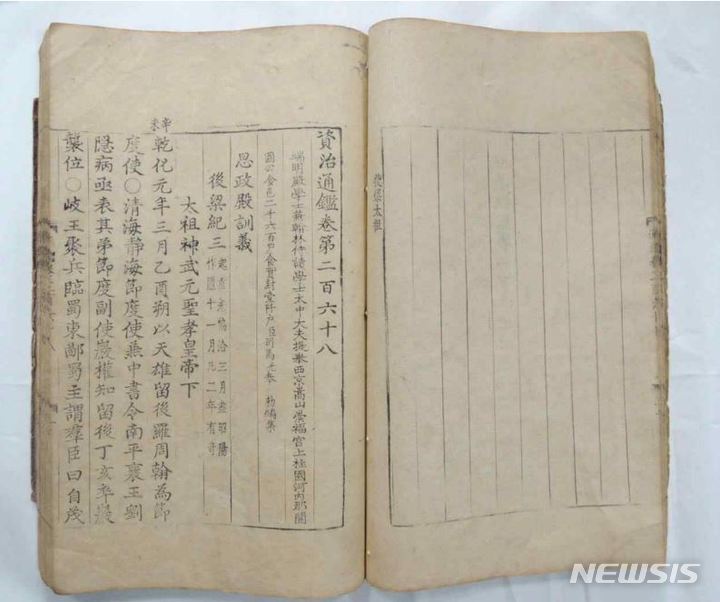 資治通鑑卷第二百六十八
端明殿學士兼翰林侍讀學士太中大夫提擧西京嵩山崇福宮上柱國河內郡開
國公食邑二千六百戶食實封壹阡戶臣司馬光奉 勅編集
思政殿訓義
後梁紀三 起重光協洽三月盡昭陽
作噩十一月凡二年有奇
大祖神武元聖孝皇帝下
辛未
乾化元年三月乙酉朔以天雄留後羅周翰為節
度使○清海靜海節度使兼中書令南平襄王劉
隱病亟表其弟節度副使巖權知留後丁亥卒巖
襲位○岐王聚兵臨蜀東鄙蜀主謂羣臣曰自茂
NEWSIS